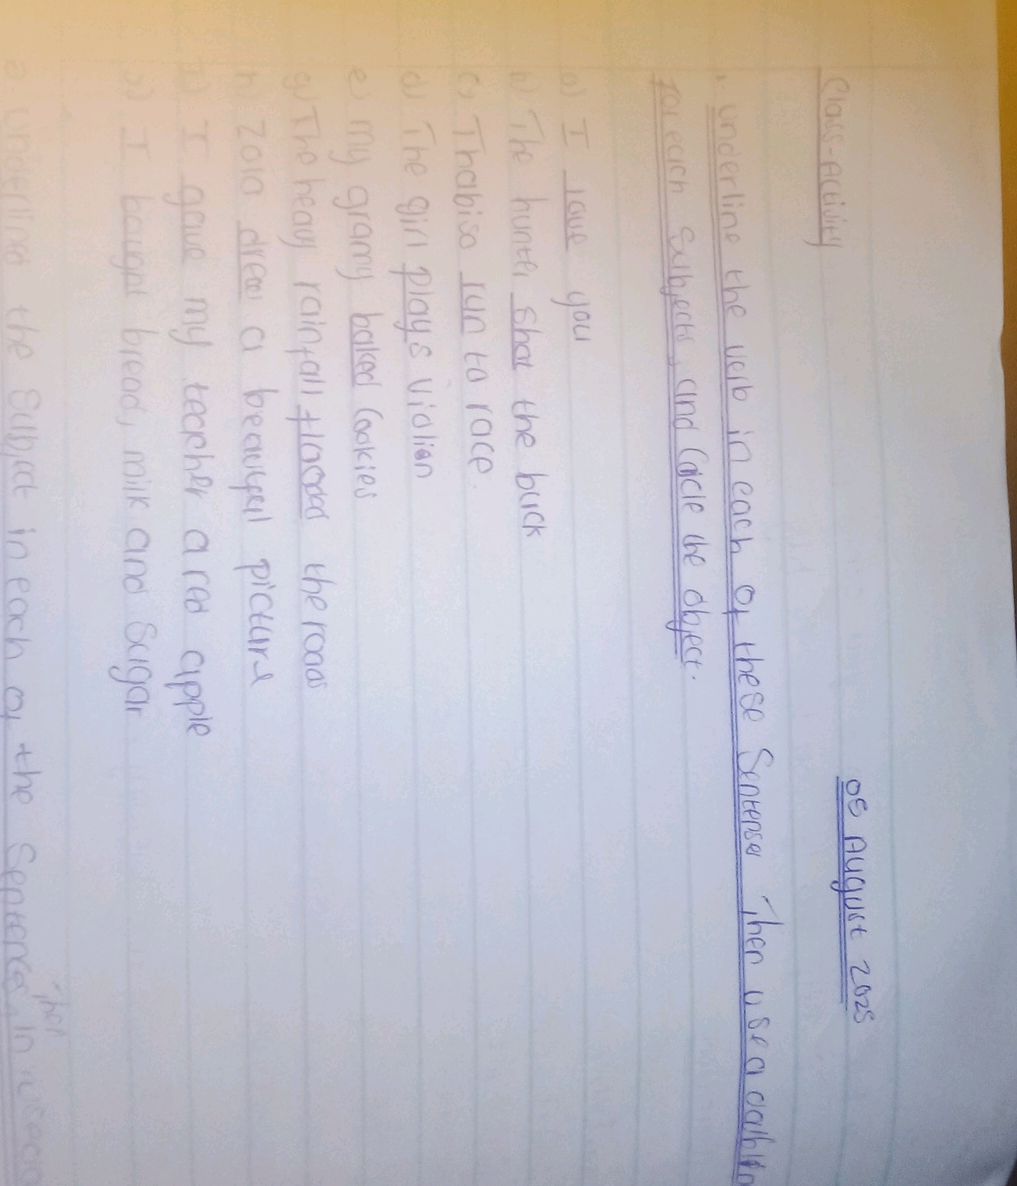 Class-Activity
05 August 2025
1. underline the verb in each of these Sentense Then use a
for each Subjects, and Circle the object.
a) I love you
b) The hunter shot the buck
c) Thabiso run to race.
d) The girl plays violion
e) my gramy baked Cookies
g) The heavy rainfall flooded the roads
h) Zola drew a beautyful picture
i) I gave my teacher a red apple
j) I bought bread, milk and Sugar
2. Underline the Subject in each of the Sentence. Then In